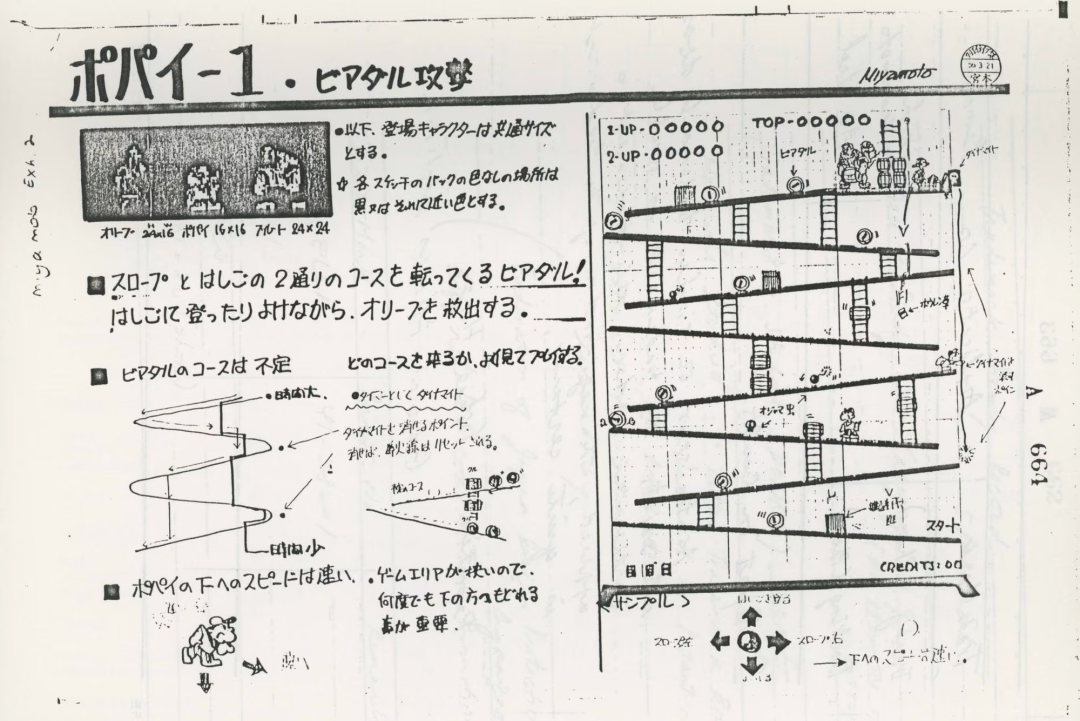 ポパイ-1・ビアダル攻撃
Miyamoto
宮本
miyamoto Exh. 2
●以下、登場キャラクターは共通サイズ
とする。
☆ 各スケッチのバックの色なしの場所は
黒又はそれに近い色とする。
オリーブ 24×16 ポパイ 16×16 ブルート 24×24
■ スロープとはしごの2通りのコースを転ってくるビアダル!
はしごに登ったりよけながら、オリーブを救出する。
■ ビアダルのコースは不定 どのコースを来るか、よく見てプレイする。
●時間大
●タイマーとして ダイナマイト
ダイナマイトを消せるポイント
消せば、導火線はリセットされる。
時間少
■ ポパイの下へのスピードは速い.
●ゲームエリアが狭いので、
何度でも下の方へもどれる
事が重要.
1-UP-00000
TOP-00000
2-UP-00000
ビアダル
ダイナマイト
オジャマ虫
スタート
CREDITS:00
<サンプル>
はしごを登る
スロープ左
スロープ右
→下へのスピードは速い。
A 664